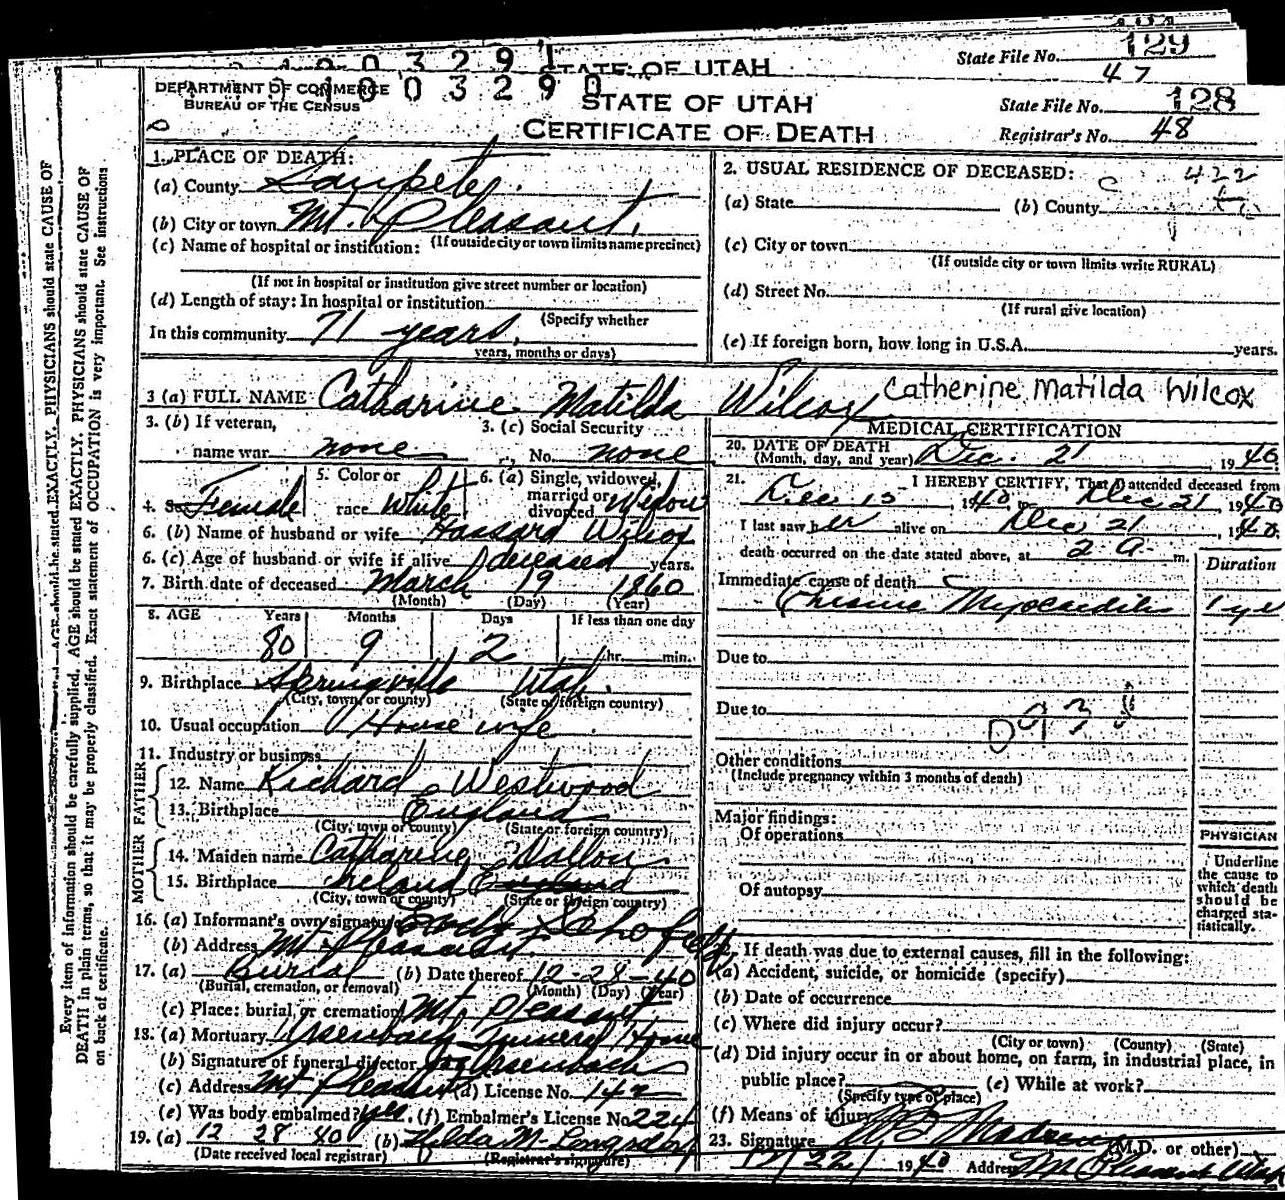 129
1003291
STATE OF UTAH
State File No.
47
DEPARTMENT OF COMMERCE
BUREAU OF THE CENSUS
1003290
STATE OF UTAH
CERTIFICATE OF DEATH
State File No. 128
Registrar's No. 48
1. PLACE OF DEATH:
(a) County Sanpete
(b) City or town Mt. Pleasant,
(If outside city or town limits name precinct)
(c) Name of hospital or institution:
(If not in hospital or institution give street number or location)
(d) Length of stay: In hospital or institution
(Specify whether
In this community 71 years,
years, months or days)
2. USUAL RESIDENCE OF DECEASED: 422
(a) State (b) County
(c) City or town
(If outside city or town limits write RURAL)
(d) Street No.
(If rural give location)
(e) If foreign born, how long in U.S.A. years.
3 (a) FULL NAME Catharine Matilda Wilcox Catherine Matilda Wilcox
3. (b) If veteran, name war none
3. (c) Social Security No. none
4. Sex Female
5. Color or race White
6. (a) Single, widowed, married or divorced Widow
6. (b) Name of husband or wife Hassard Wilcox
6. (c) Age of husband or wife if alive deceased years.
7. Birth date of deceased March 19 1860
(Month) (Day) (Year)
8. AGE Years Months Days If less than one day
80 9 2 hr. min.
9. Birthplace Springville Utah.
(City, town or county) (State or foreign country)
10. Usual occupation House wife
11. Industry or business
FATHER
12. Name Richard Westwood
13. Birthplace England
(City, town or county) (State or foreign country)
MOTHER
14. Maiden name Catharine
15. Birthplace Ireland England
(City, town or county) (State or foreign country)
16. (a) Informant's own signature Schofield
(b) Address Mt Pleasant.
17. (a) Burial (b) Date thereof 12-28-40
(Burial, cremation, or removal) (Month) (Day) (Year)
(c) Place: burial or cremation Mt. Pleasant
18. (a) Mortuary Ursenbach Funeral Home
(b) Signature of funeral director Ursenbach
(c) Address Mt Pleasant (d) License No. 142
(e) Was body embalmed? yes. (f) Embalmer's License No. 224
19. (a) 12 28 40 (b) Hilda M. Longsdorf
(Date received local registrar) (Registrar's signature)
MEDICAL CERTIFICATION
20. DATE OF DEATH
(Month, day, and year) Dec. 21 1940.
21. I HEREBY CERTIFY, That I attended deceased from
Dec 15, 1940 to Dec 21, 1940
I last saw her alive on Dec 21, 1940.
death occurred on the date stated above, at 2 a. m.
Duration
Immediate cause of death
Chronic Myocarditis 1 yr
Due to
Due to
Other conditions
(Include pregnancy within 3 months of death)
Major findings:
Of operations
Of autopsy
PHYSICIAN
Underline
the cause to
which death
should be
charged sta-
tistically.
22. If death was due to external causes, fill in the following:
(a) Accident, suicide, or homicide (specify)
(b) Date of occurrence
(c) Where did injury occur?
(City or town) (County) (State)
(d) Did injury occur in or about home, on farm, in industrial place, in
public place? (e) While at work?
(Specify type of place)
(f) Means of injury
23. Signature Madsen (M.D. or other)
12/22/1940 Address Mt Pleasant Utah
Every item of Information should be carefully supplied. AGE should be stated EXACTLY. PHYSICIANS should state CAUSE OF
DEATH in plain terms, so that it may be properly classified. Exact statement of OCCUPATION is very important. See instructions
on back of certificate.
AGE should be stated EXACTLY. PHYSICIANS should state CAUSE OF